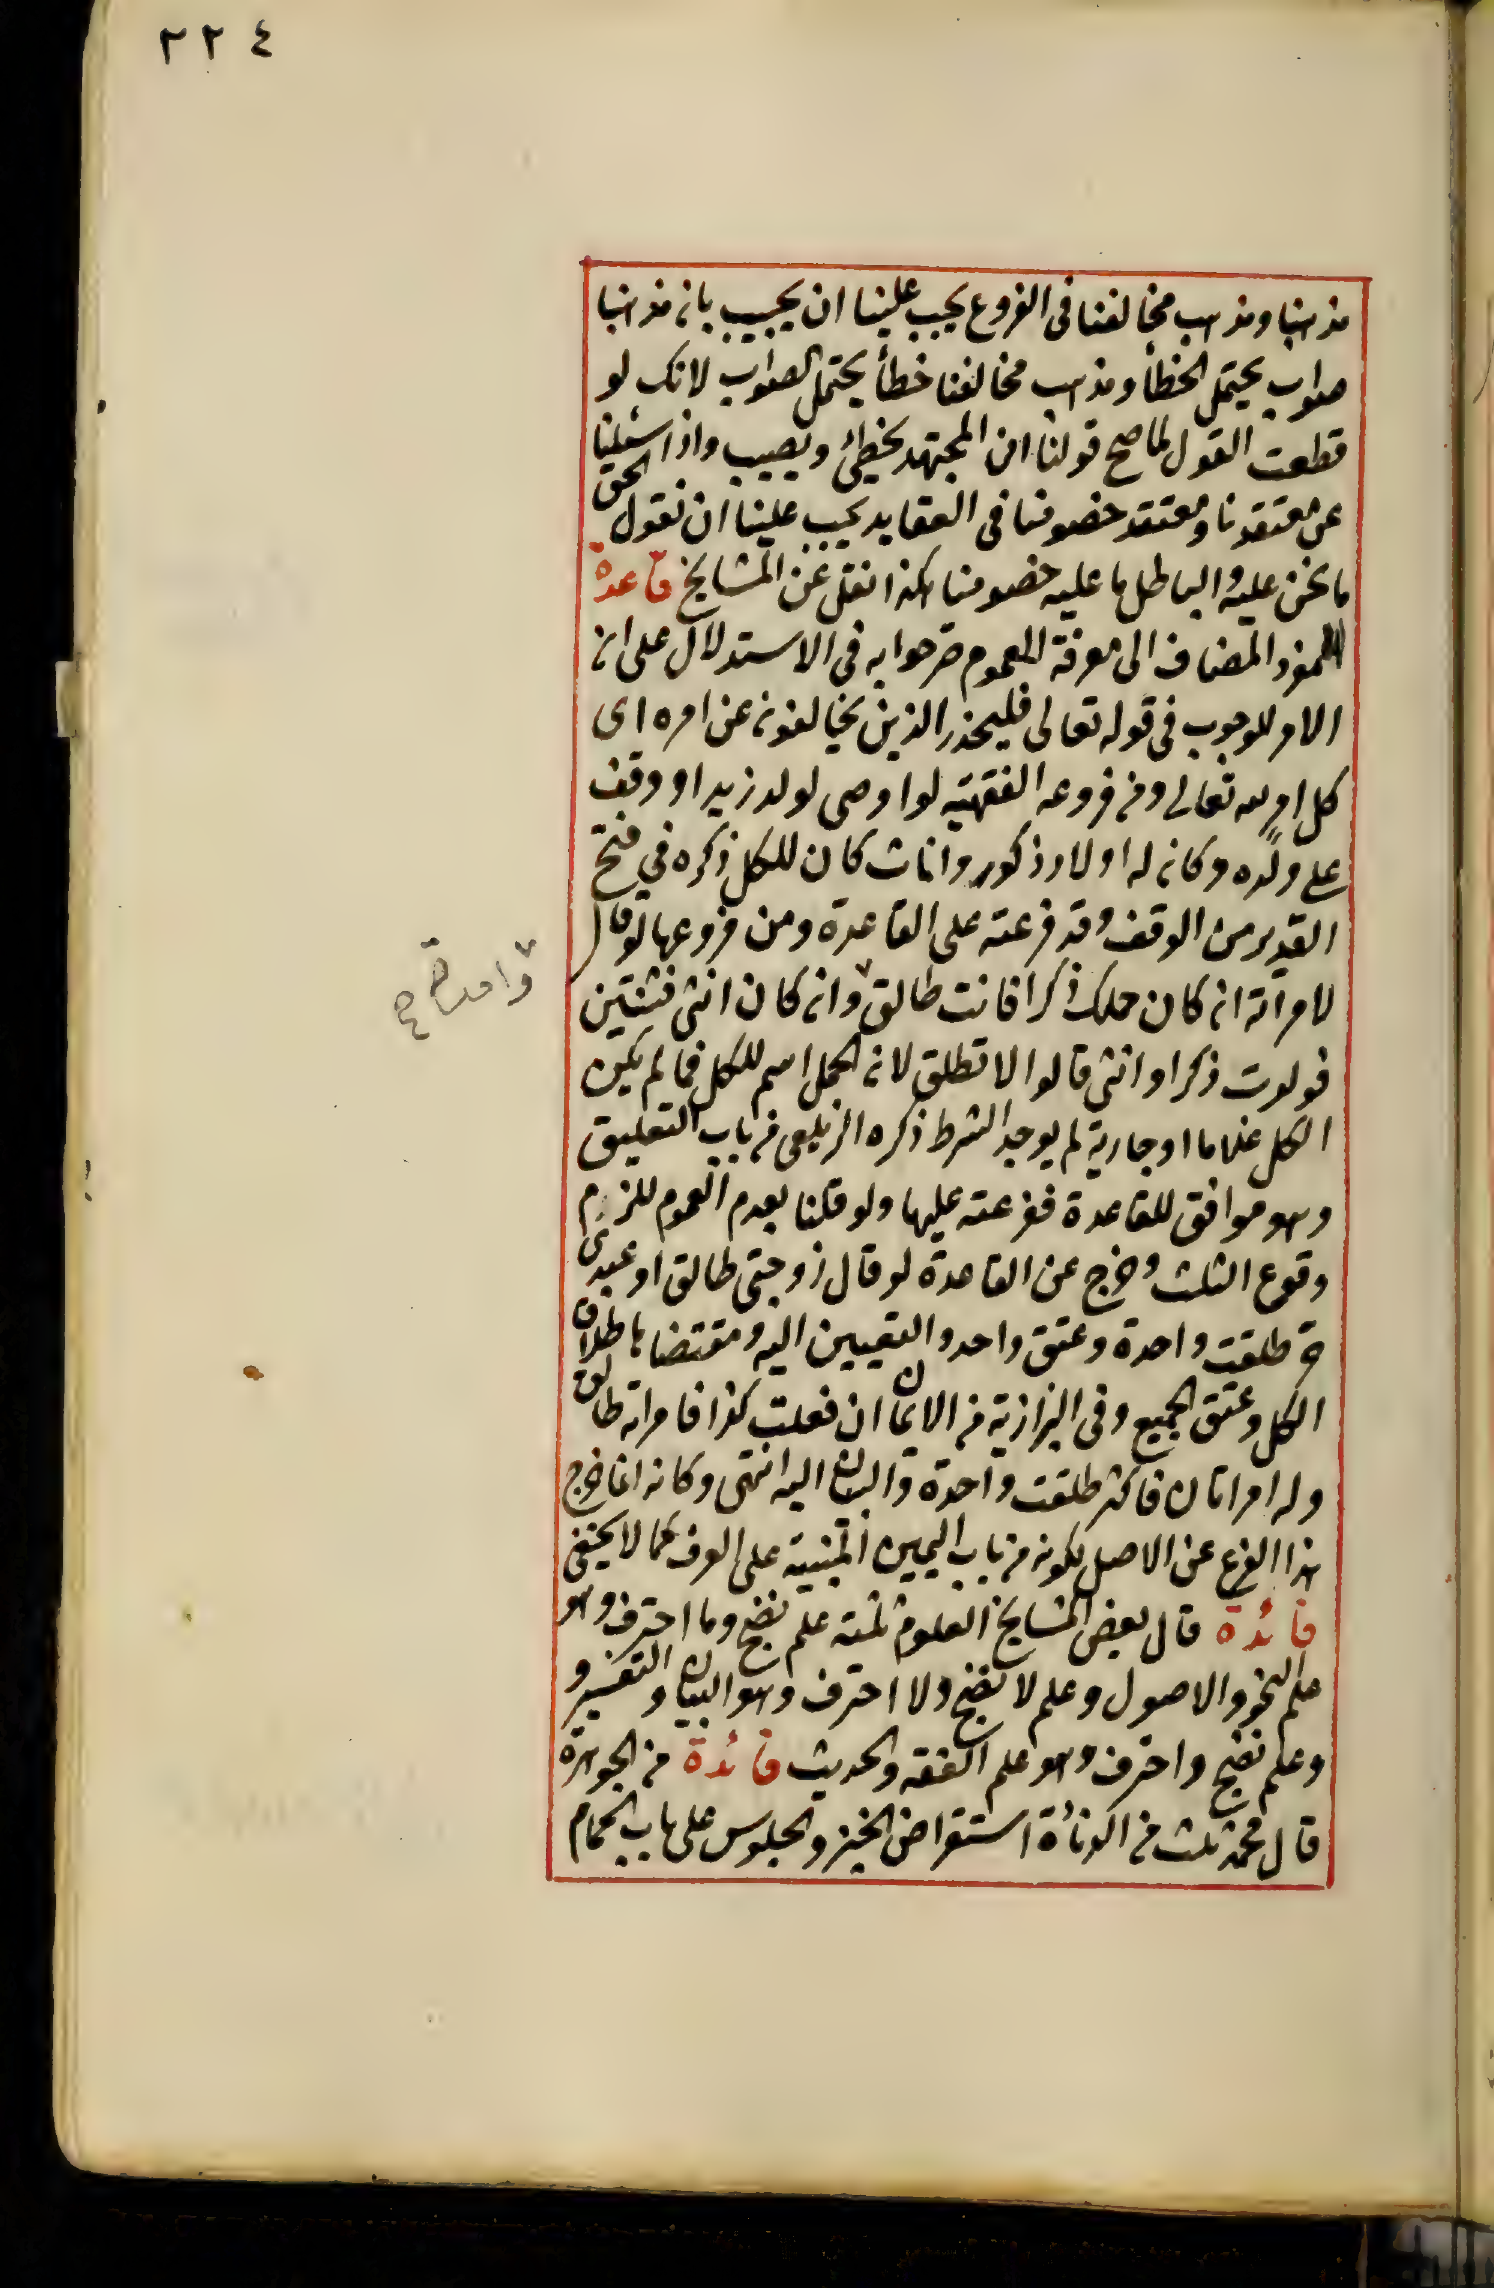 ٢٢٤
مذهبنا ومذهب مخالفنا فى الفروع يجب علينا ان يجيب بانه مذهبنا
صواب يحتمل الخطأ ومذهب مخالفنا خطأ يحتمل الصواب لانك لو
قطعت القول لما صح قولنا ان المجتهد يخطئ ويصيب واذا سئلنا
عن معتقدنا ومعتقد خصومنا فى العقايد يجب علينا ان نقول الحق
ما نحن عليه والباطل ما عليه خصومنا هكذا نقل عن المشايخ قاعدة
المفرد المضاف الى معرفة للعموم صرحوا به فى الاستدلال على ان
الامر للوجوب فى قوله تعالى فليحذر الذين يخالفون عن امره اى
كل امر لله تعالى ومن فروعه الفقهية لو اوصى لولد زيد او وقف
على ولده وكان له اولاد ذكور واناث كان للكل ذكره في فتح
القدير من الوقف وقد فرعته على القاعدة ومن فروعها لو قال
لامرأته ان كان حملك ذكرا فانت طالق وان كان انثى فثنتين
فولدت ذكرا وانثى قالوا لا تطلق لان الحمل اسم للكل فما لم يكن
الكل غلاما او جارية لم يوجد الشرط ذكره الزيلعى من باب التعليق
وهو موافق للقاعدة ففرعته عليها ولو قلنا بعدم العموم للزم
وقوع الثلث وخرج عن القاعدة لو قال زوجتى طالق او عبدى
حر طلقت واحدة وعتق واحد والتعيين اليه ومقتضاها طلاق
الكل وعتق الجميع وفى البزازية من الايمان ان فعلت كذا فامراته طالق
وله امراتان فاكثر طلقت واحدة والبيان اليه انتهى وكانه انما خرج
هذا الفرع عن الاصل لكونه من باب اليمين المبنية على العرف كما لا يخفى
فائدة قال بعض المشايخ العلوم ثلثة علم نضج وما احترق وهو
علم النحو والاصول وعلم لا نضج ولا احترق وهو البيان والتفسير و
وعلم نضج واحترق وهو علم الفقه والحديث فائدة من الجوهرة
قال محمد ثلث من الدنائة استقراض الخبز والجلوس على باب الحمام
واحدة صح